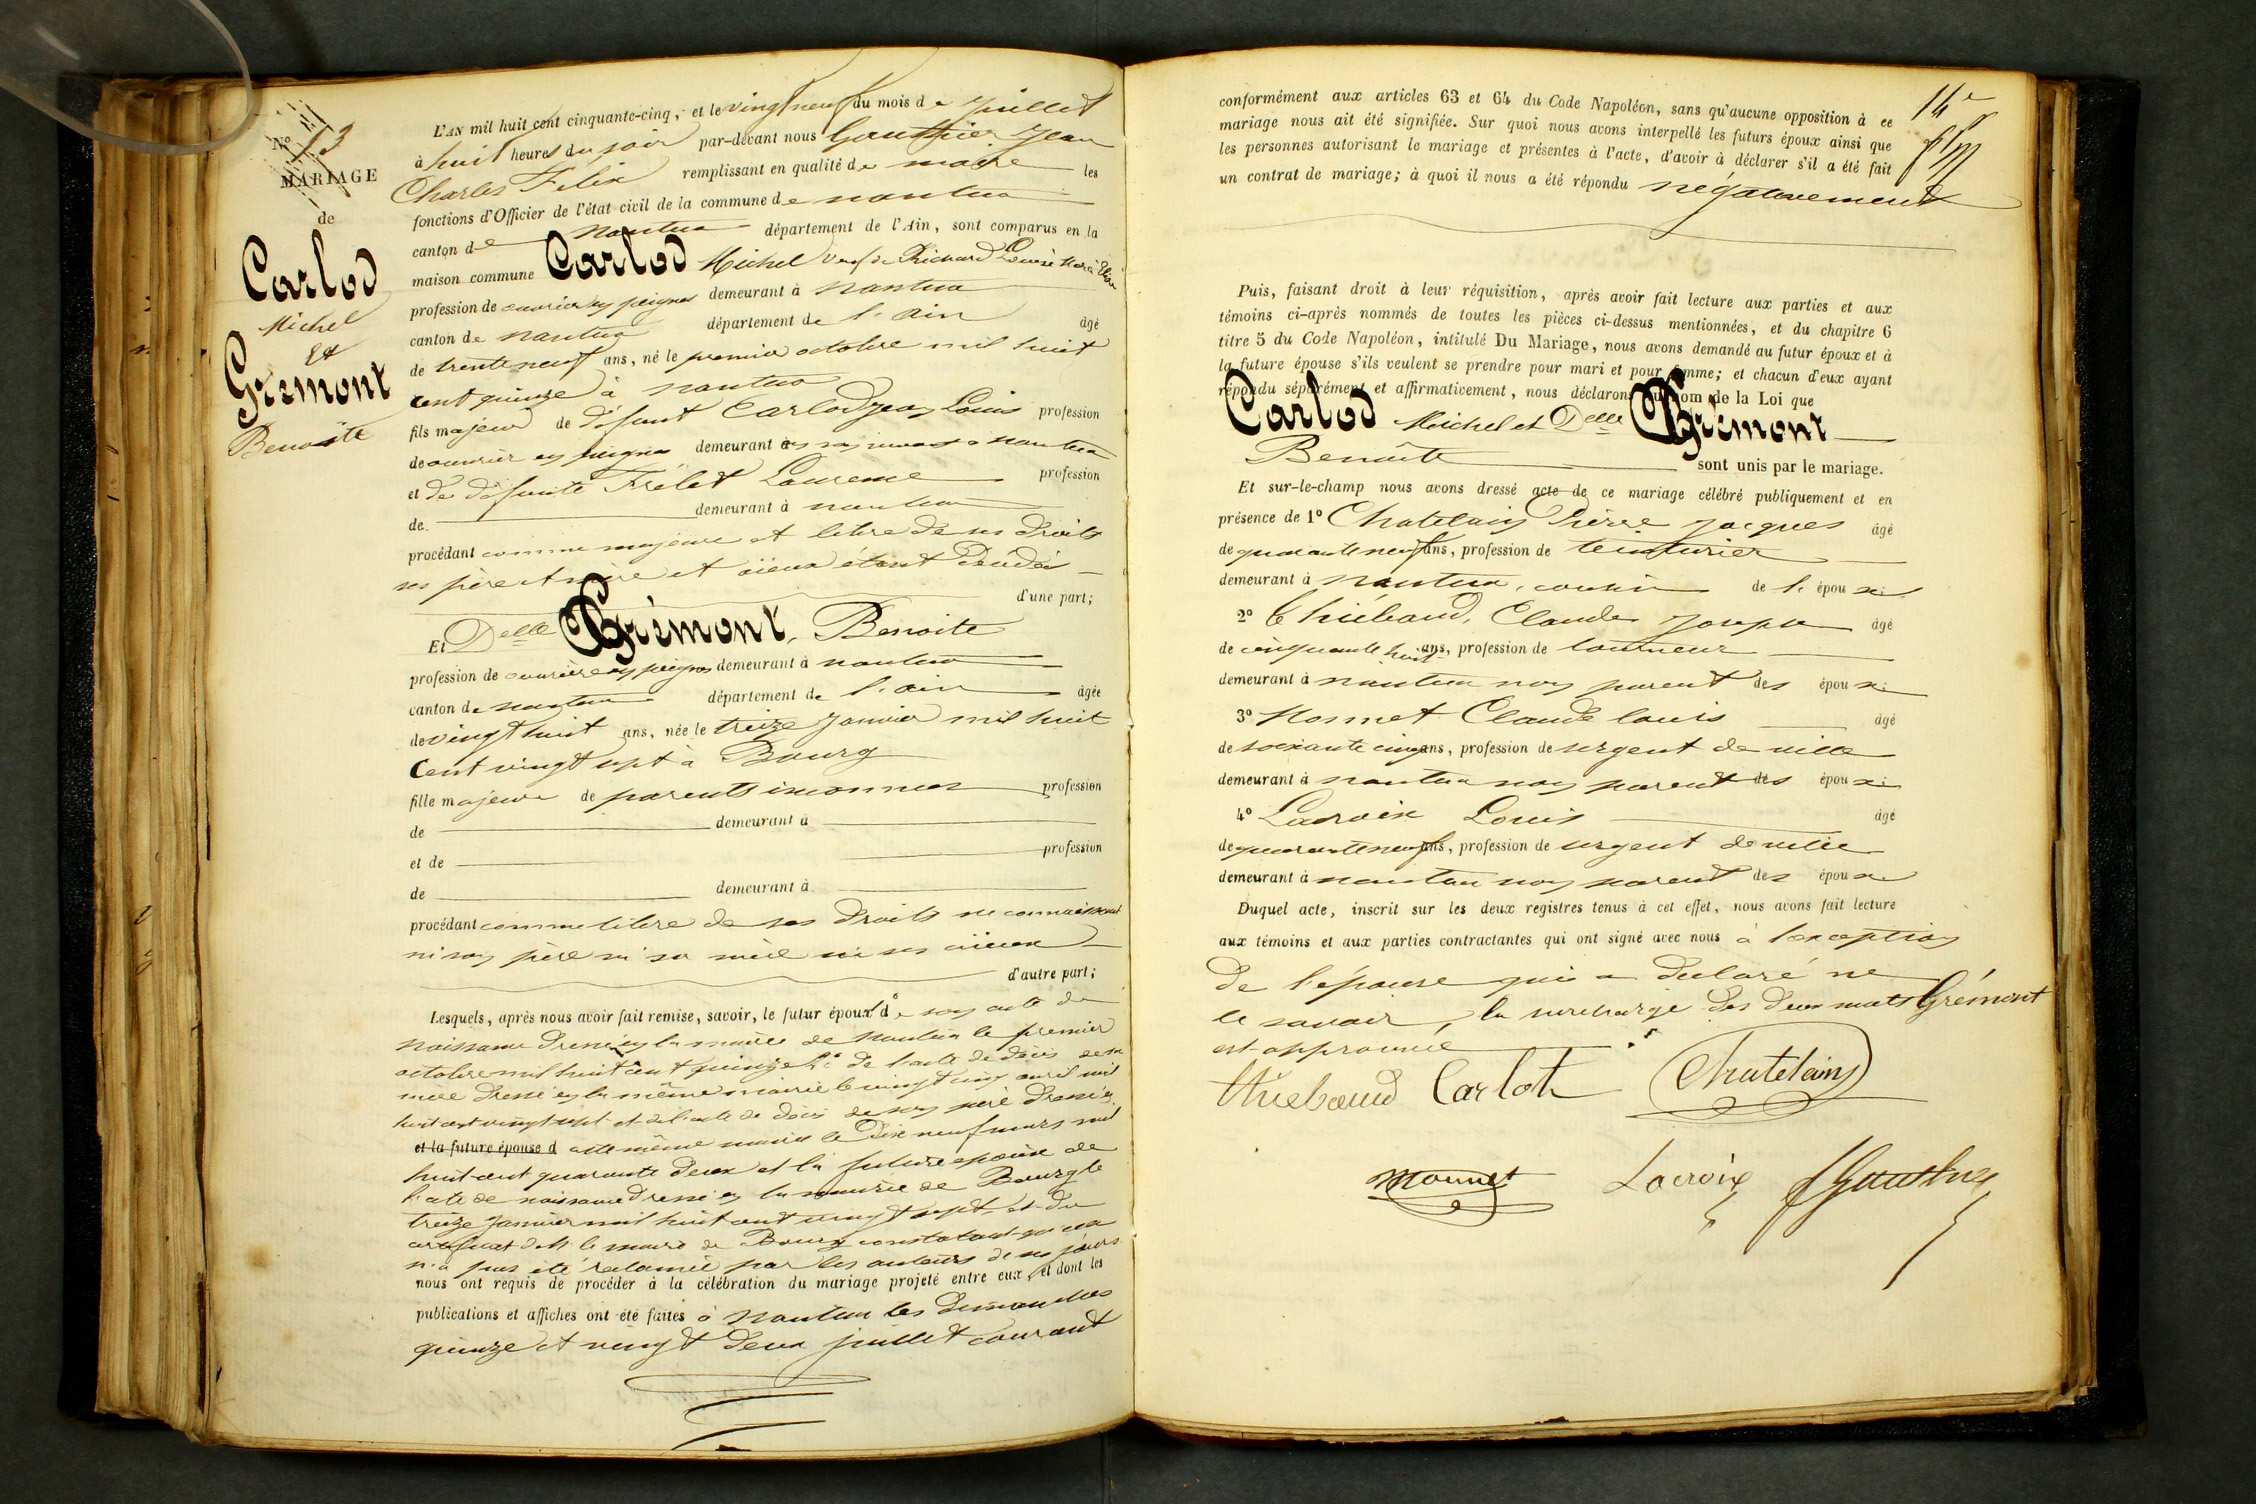 No 13
MARIAGE
de
Carlod
Michel
Et
Grémont
Benoite
L'AN mil huit cent cinquante-cinq, et le vingt neuf du mois de Juillet
à huit heures du soir par-devant nous Gauthier Jean
Charles Félix remplissant en qualité de maire les
fonctions d'Officier de l'état civil de la commune de nantua
canton de nantua département de l'Ain, sont comparus en la
maison commune Carlod Michel veuf de Richard Louise Marie
profession de ouvrier en peignes demeurant à nantua
canton de nantua département de l'ain âgé
de trente neuf ans, né le premier octobre mil huit
cent quinze à nantua
fils majeur de défunt Carlod Jean Louis profession
de ouvrier en peignes demeurant en son vivant à nantua
et de défunte Frélet Laurence profession
de demeurant à nantua
procédant comme majeur et libre de ses droits
ses père et mère et aïeux étant décédés
d'une part;
Et Delle Grémont, Benoite
profession de ouvrière en peignes demeurant à nantua
canton de nantua département de l'ain âgée
de vingt huit ans, née le treize Janvier mil huit
Cent vingt sept à Bourg
fille majeure de parents inconnus profession
de demeurant à
et de profession
de demeurant à
procédant comme libre de ses droits ne connaissant
ni son père ni sa mère ni ses aïeux
d'autre part;
Lesquels, après nous avoir fait remise, savoir, le futur époux 1° de son acte de
naissance dressé en la mairie de nantua le premier
octobre mil huit cent quinze 2° de l'acte de décès de sa
mère dressé en la même mairie le vingt cinq avril mil
huit cent vingt sept et de l'acte de décès de son père dressé en
et la future épouse d cette même mairie le dix neuf mars mil
huit cent quarante deux et la future épouse de
l'acte de naissance dressé en la mairie de Bourg le
treize Janvier mil huit cent vingt sept et du
certificat de M. le maire de Bourg constatant qu'elle
n'a pas été réclamée par les auteurs de ses jours
nous ont requis de procéder à la célébration du mariage projeté entre eux, et dont les
publications et affiches ont été faites à nantua les dimanches
quinze et vingt deux juillet courant
14e
conformément aux articles 63 et 64 du Code Napoléon, sans qu'aucune opposition à ce
mariage nous ait été signifiée. Sur quoi nous avons interpellé les futurs époux ainsi que
les personnes autorisant le mariage et présentes à l'acte, d'avoir à déclarer s'il a été fait
un contrat de mariage; à quoi il nous a été répondu négativement
Puis, faisant droit à leur réquisition, après avoir fait lecture aux parties et aux
témoins ci-après nommés de toutes les pièces ci-dessus mentionnées, et du chapitre 6
titre 5 du Code Napoléon, intitulé Du Mariage, nous avons demandé au futur époux et à
la future épouse s'ils veulent se prendre pour mari et pour femme; et chacun d'eux ayant
répondu séparément et affirmativement, nous déclarons au nom de la Loi que
Carlod Michel et Delle Grémont
Benoite sont unis par le mariage.
Et sur-le-champ nous avons dressé acte de ce mariage célébré publiquement et en
présence de 1° Chatelain Pierre Jacques âgé
de quarante neuf ans, profession de teinturier
demeurant à nantua, cousin de l'époux
2° Thiébaud, Claude Joseph âgé
de cinquante huit ans, profession de tourneur
demeurant à nantua non parent des époux
3° Monnet Claude louis âgé
de soixante cinq ans, profession de sergent de ville
demeurant à nantua non parent des époux
4° Lacroix Louis âgé
de quarante neuf ans, profession de sergent de ville
demeurant à nantua non parent des époux
Duquel acte, inscrit sur les deux registres tenus à cet effet, nous avons fait lecture
aux témoins et aux parties contractantes qui ont signé avec nous à l'exception
de l'épouse qui a déclaré ne
le savoir, la surcharge des deux mots Grémont
est approuvée
Thiebaud Carlot Chatelain
Monnet Lacroix Gauthier